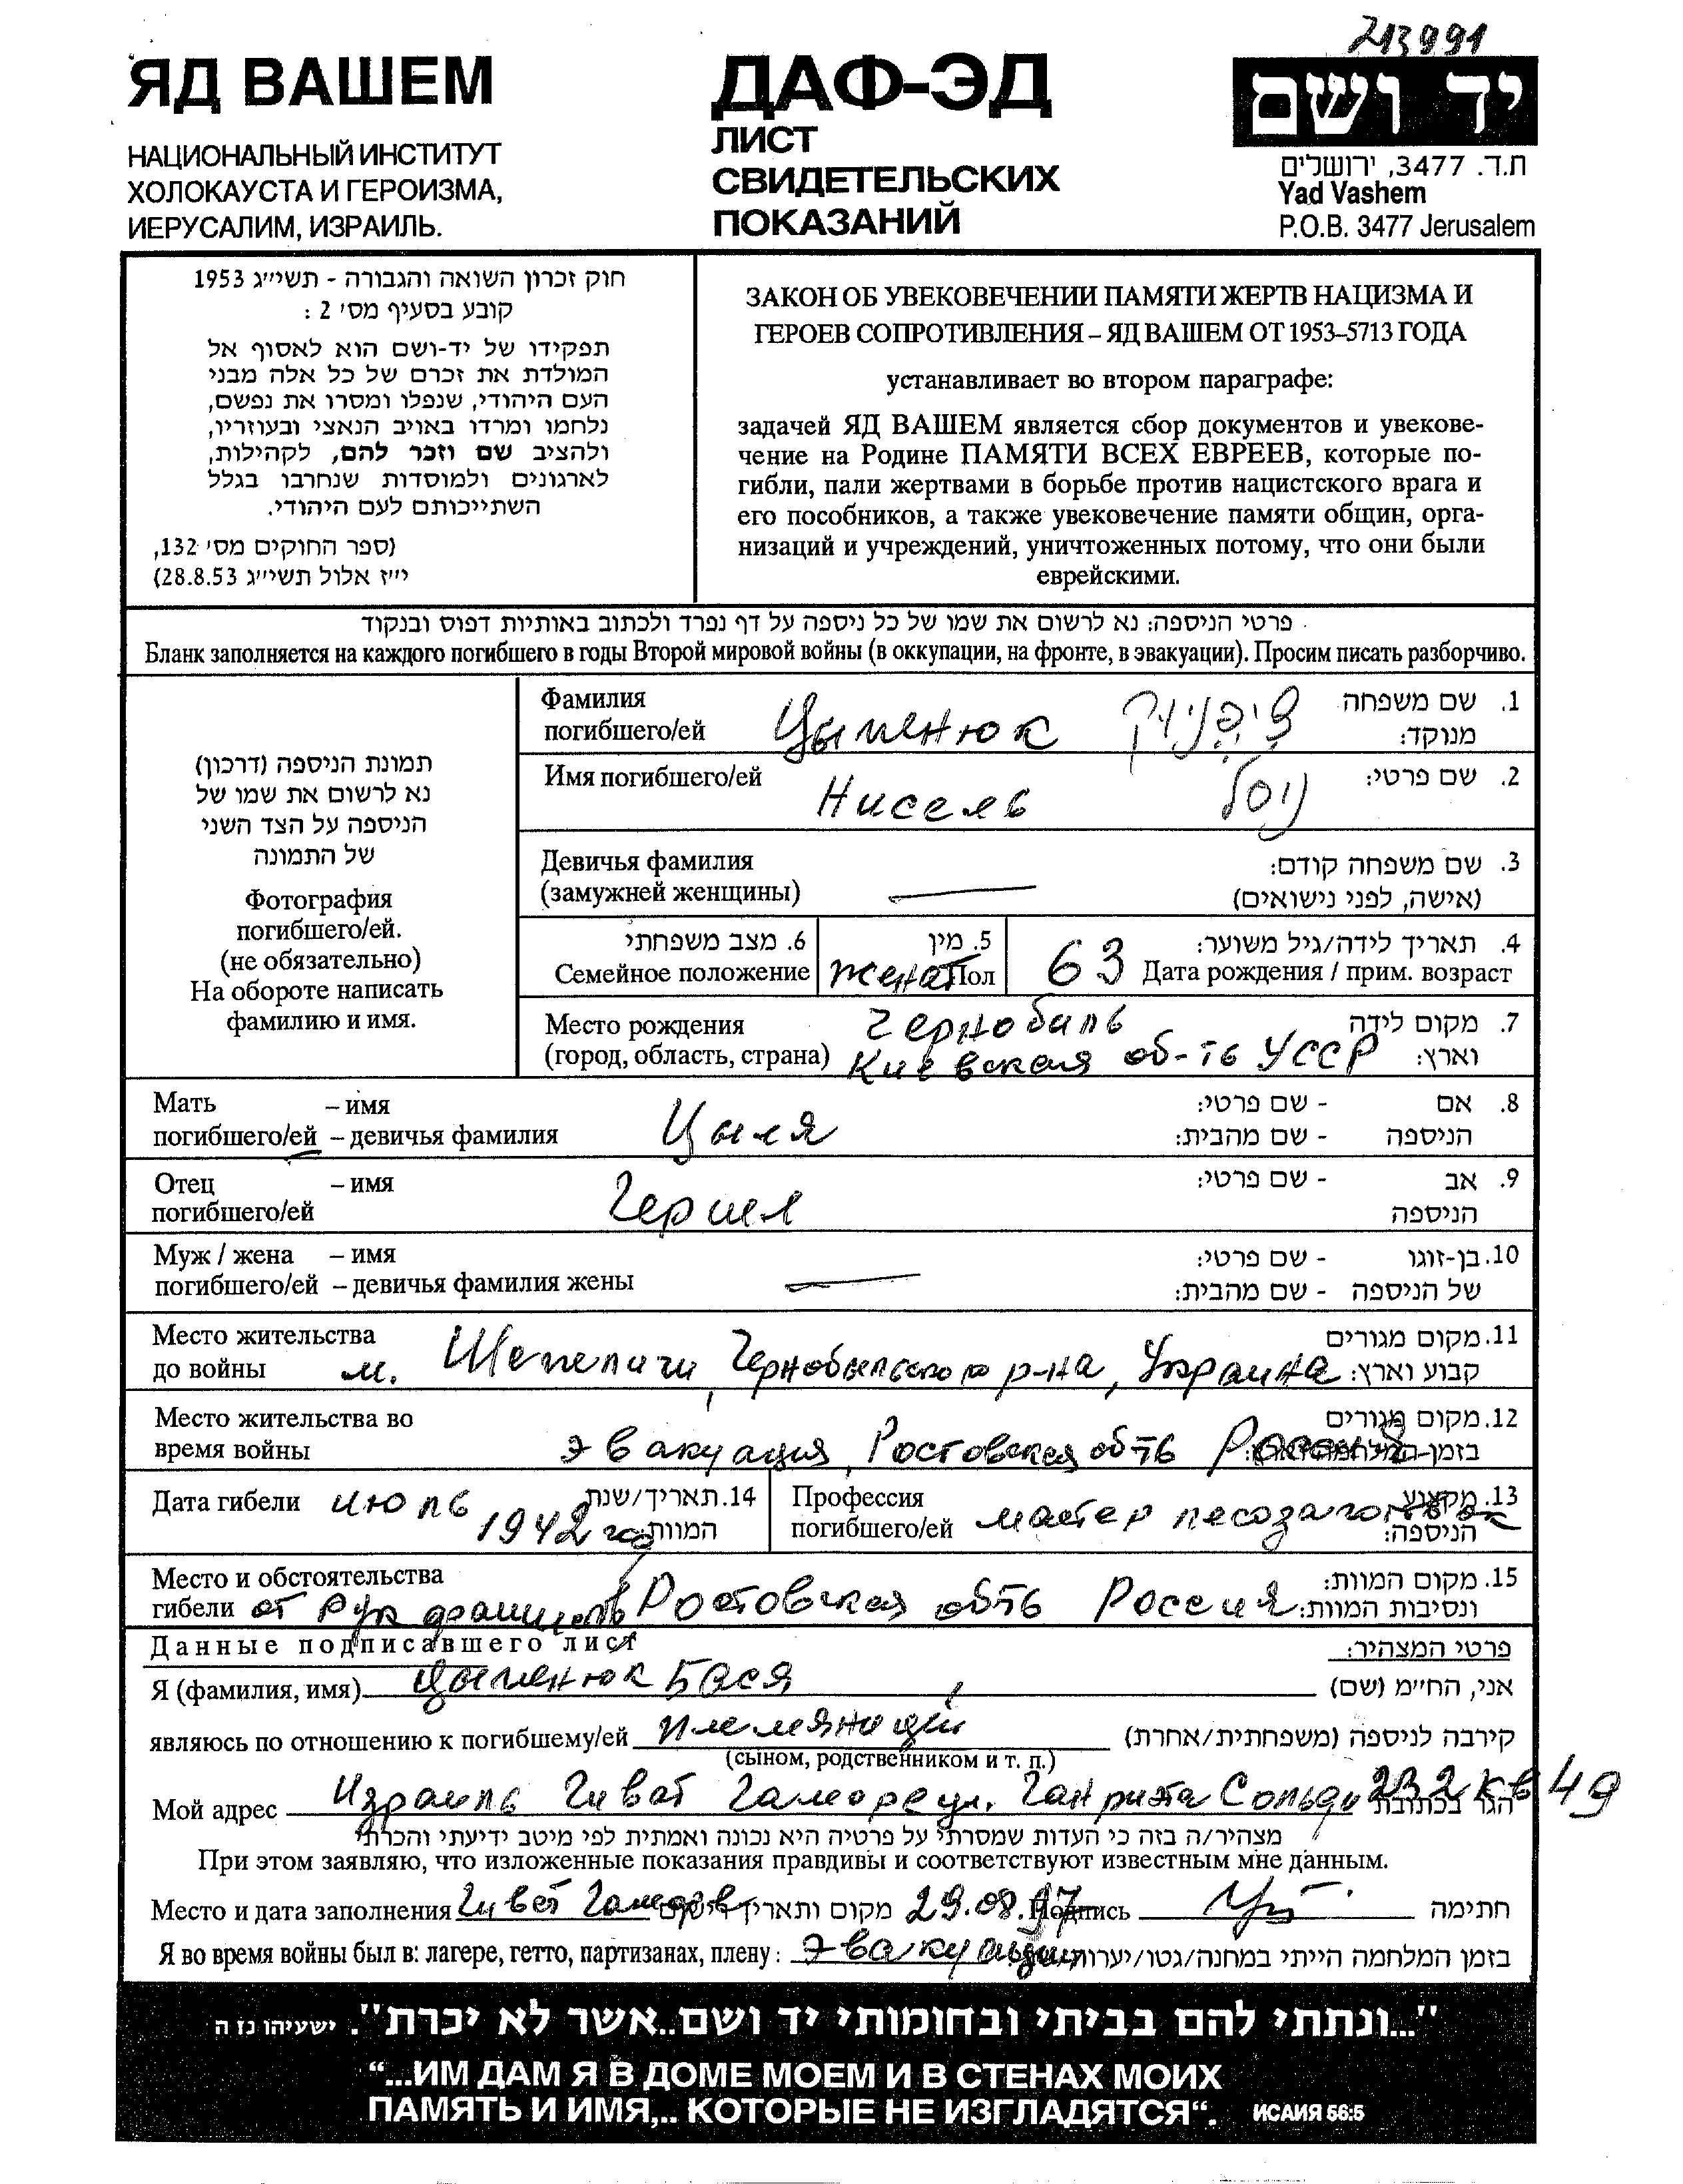 213991
ЯД ВАШЕМ
НАЦИОНАЛЬНЫЙ ИНСТИТУТ
ХОЛОКАУСТА И ГЕРОИЗМА,
ИЕРУСАЛИМ, ИЗРАИЛЬ.
ДАФ-ЭД
ЛИСТ
СВИДЕТЕЛЬСКИХ
ПОКАЗАНИЙ
יד ושם
ת.ד. 3477, ירושלים
Yad Vashem
P.O.B. 3477 Jerusalem
חוק זכרון השואה והגבורה - תשי״ג 1953
קובע בסעיף מס׳ 2 :
תפקידו של יד-ושם הוא לאסוף אל
המולדת את זכרם של כל אלה מבני
העם היהודי, שנפלו ומסרו את נפשם,
נלחמו ומרדו באויב הנאצי ובעוזריו,
ולהציב שם וזכר להם, לקהילות,
לארגונים ולמוסדות שנחרבו בגלל
השתייכותם לעם היהודי.
(ספר החוקים מס׳ 132,
י״ז אלול תשי״ג 28.8.53)
ЗАКОН ОБ УВЕКОВЕЧЕНИИ ПАМЯТИ ЖЕРТВ НАЦИЗМА И
ГЕРОЕВ СОПРОТИВЛЕНИЯ – ЯД ВАШЕМ ОТ 1953–5713 ГОДА
устанавливает во втором параграфе:
задачей ЯД ВАШЕМ является сбор документов и увекове-
чение на Родине ПАМЯТИ ВСЕХ ЕВРЕЕВ, которые по-
гибли, пали жертвами в борьбе против нацистского врага и
его пособников, а также увековечение памяти общин, орга-
низаций и учреждений, уничтоженных потому, что они были
еврейскими.
פרטי הניספה: נא לרשום את שמו של כל ניספה על דף נפרד ולכתוב באותיות דפוס ובנקוד
Бланк заполняется на каждого погибшего в годы Второй мировой войны (в оккупации, на фронте, в эвакуации). Просим писать разборчиво.
תמונת הניספה (דרכון)
נא לרשום את שמו של
הניספה על הצד השני
של התמונה
Фотография
погибшего/ей.
(не обязательно)
На обороте написать
фамилию и имя.
Фамилия 1. שם משפחה
погибшего/ей Цыменюк מנוקד:
Имя погибшего/ей Нисель ניסל 2. שם פרטי:
Девичья фамилия 3. שם משפחה קודם:
(замужней женщины) (אישה, לפני נישואים)
6. מצב משפחתי 5. מין 4. תאריך לידה/גיל משוער:
Семейное положение женат Пол 63 Дата рождения / прим. возраст
Место рождения Чернобыль 7. מקום לידה
(город, область, страна) Киевская об-ть УССР וארץ:
Мать – имя 8. אם - שם פרטי:
погибшего/ей – девичья фамилия Цыля הניספה - שם מהבית:
Отец – имя 9. אב - שם פרטי:
погибшего/ей Гершл הניספה
Муж / жена – имя 10. בן-זוגו - שם פרטי:
погибшего/ей – девичья фамилия жены של הניספה - שם מהבית:
Место жительства 11. מקום מגורים
до войны м. Шепеличи, Чернобыльского р-на, Украина קבוע וארץ:
Место жительства во 12. מקום מגורים
время войны эвакуация, Ростовская об-ть Россия
Дата гибели июль 14. תאריך/שנת Профессия 13. מקצוע
1942 год המוות: погибшего/ей мастер лесозаготовок הניספה:
Место и обстоятельства 15. מקום המוות:
гибели от рук фашистов Ростовская об-ть Россия ונסיבות המוות:
Данные подписавшего лист פרטי המצהיר:
Я (фамилия, имя) Цыменюк Бася, אני, הח״מ (שם)
являюсь по отношению к погибшему/ей племянницей קירבה לניספה (משפחתית/אחרת)
(сыном, родственником и т. п.)
Мой адрес Израиль Гиват Гаморе ул. Ганриета Сольди 232 кв 49 הגר בכתובת
מצהיר/ה בזה כי העדות שמסרתי על פרטיה היא נכונה ואמתית לפי מיטב ידיעתי והכרתי
При этом заявляю, что изложенные показания правдивы и соответствуют известным мне данным.
Место и дата заполнения Гиват Гаморе מקום ותאריך 29.08.97 Подпись חתימה
Я во время войны был в: лагере, гетто, партизанах, плену: Эвакуации בזמן המלחמה הייתי במחנה/גטו/יערות
"...ונתתי להם בביתי ובחומותי יד ושם..אשר לא יכרת". ישעיהו נז ה
“...ИМ ДАМ Я В ДОМЕ МОЕМ И В СТЕНАХ МОИХ
ПАМЯТЬ И ИМЯ,.. КОТОРЫЕ НЕ ИЗГЛАДЯТСЯ“. ИСАИЯ 56:5